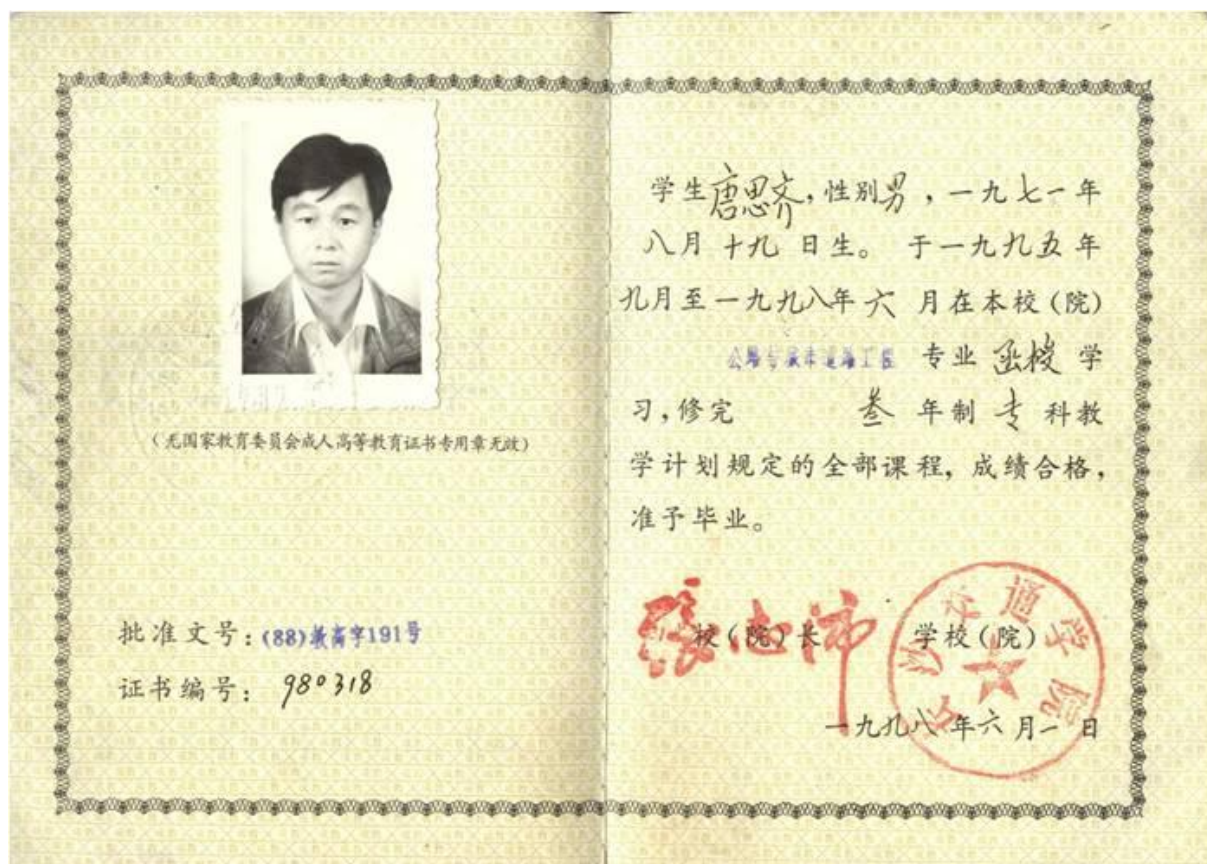 (无国家教育委员会成人高等教育证书专用章无效)
批准文号：(88)教高字191号
证书编号：980318
学生唐思齐，性别男，一九七一年
八月十九日生。于一九九五年
九月至一九九八年六月在本校(院)
公路与城市道路工程 专业函授学
习，修完 叁年制专科教
学计划规定的全部课程，成绩合格，
准予毕业。
校(院)长 学校(院)
长沙交通学院
一九九八年六月一日